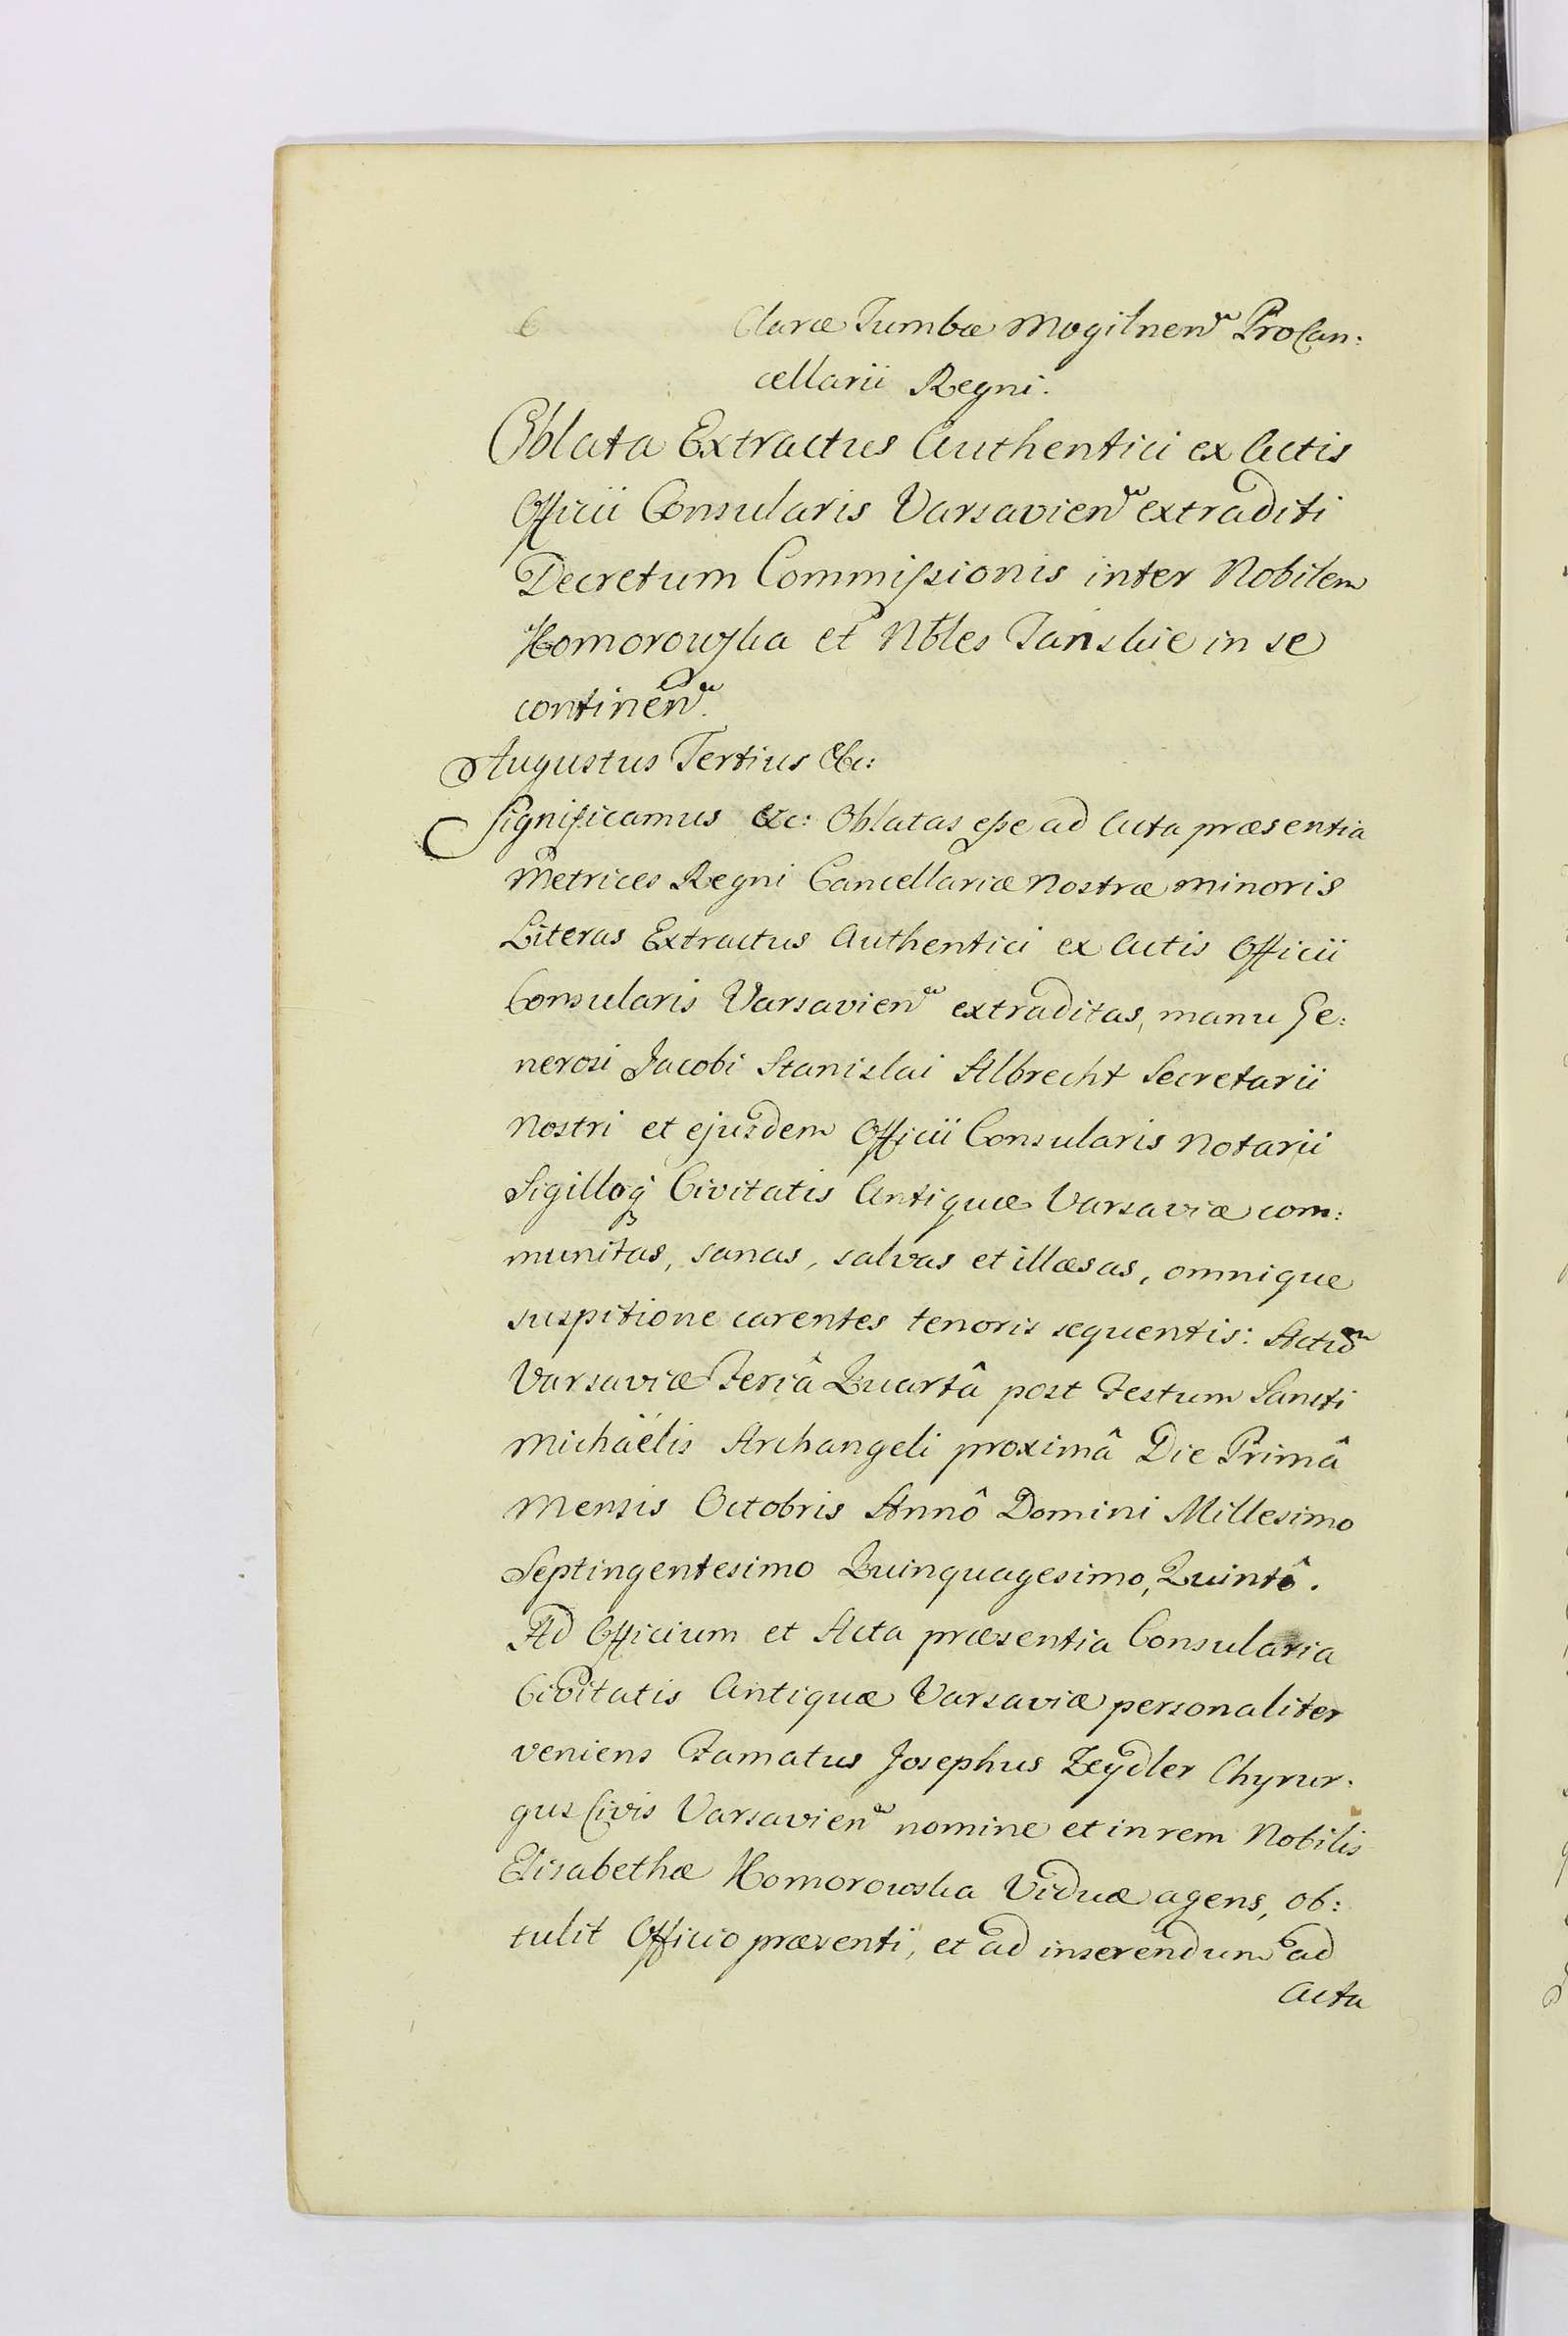 Claræ Tumbæ Mogilnen̄ ProCan:
cellarii Regni.
Oblata Extractus Authentici ex Actis
Officii Consularis Varsavien̄ extraditi
Decretum Commissionis inter Nobilem
Homorowska et Nbles Tanskie in se
continen̄.
Augustus Tertius &c:
Significamus &c: Oblatas esse ad Acta præsentia
Metrices Regni Cancellariæ Nostræ Minoris
Literas Extractus Authentici ex Actis Officii
Consularis Varsavien̄ extraditas, manu Ge:
nerosi Jacobi Stanislai Albrecht Secretarii
Nostri et ejusdem Officii Consularis Notarii
Sigilloq; Civitatis Antiquæ Varsaviæ com:
munitas, sanas, salvas et illæsas, omnique
suspitione carentes tenoris sequentis: Actum
Varsaviæ Feriâ Quartâ post Festum Sancti
Michaëlis Archangeli proximâ Die Primâ
Mensis Octobris Annô Domini Millesimo
Septingentesimo Quinquagesimo, Quintô.
Ad Officium et Acta præsentia Consularia
Civitatis Antiquæ Varsaviæ personaliter
veniens Famatus Josephus Zeydler Chyrur:
gus Civis Varsavien̄ nomine et in rem Nobilis
Elisabethæ Homorowska Viduæ agens, ob:
tulit Officio præsenti, et ad inserendum ad
Acta